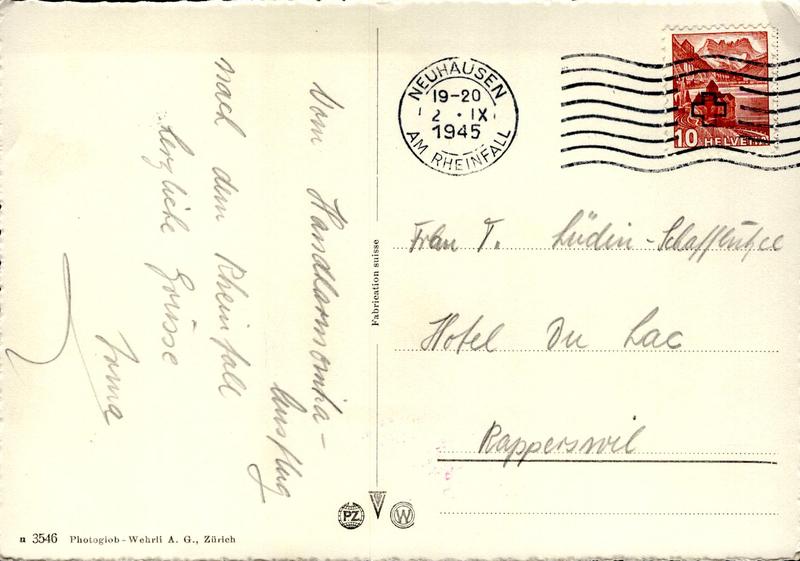 Vom Handharmonika-
Ausflug
nach dem Rheinfall
herzliche Grüsse
Irma
Fabrication suisse
NEUHAUSEN
19-20
2 • IX
1945
AM RHEINFALL
10 HELVETIA
Frau T. Lüdin-Schafflützel
Hotel Du Lac
Rapperswil
PZ
W
n 3546 Photoglob-Wehrli A. G., Zürich